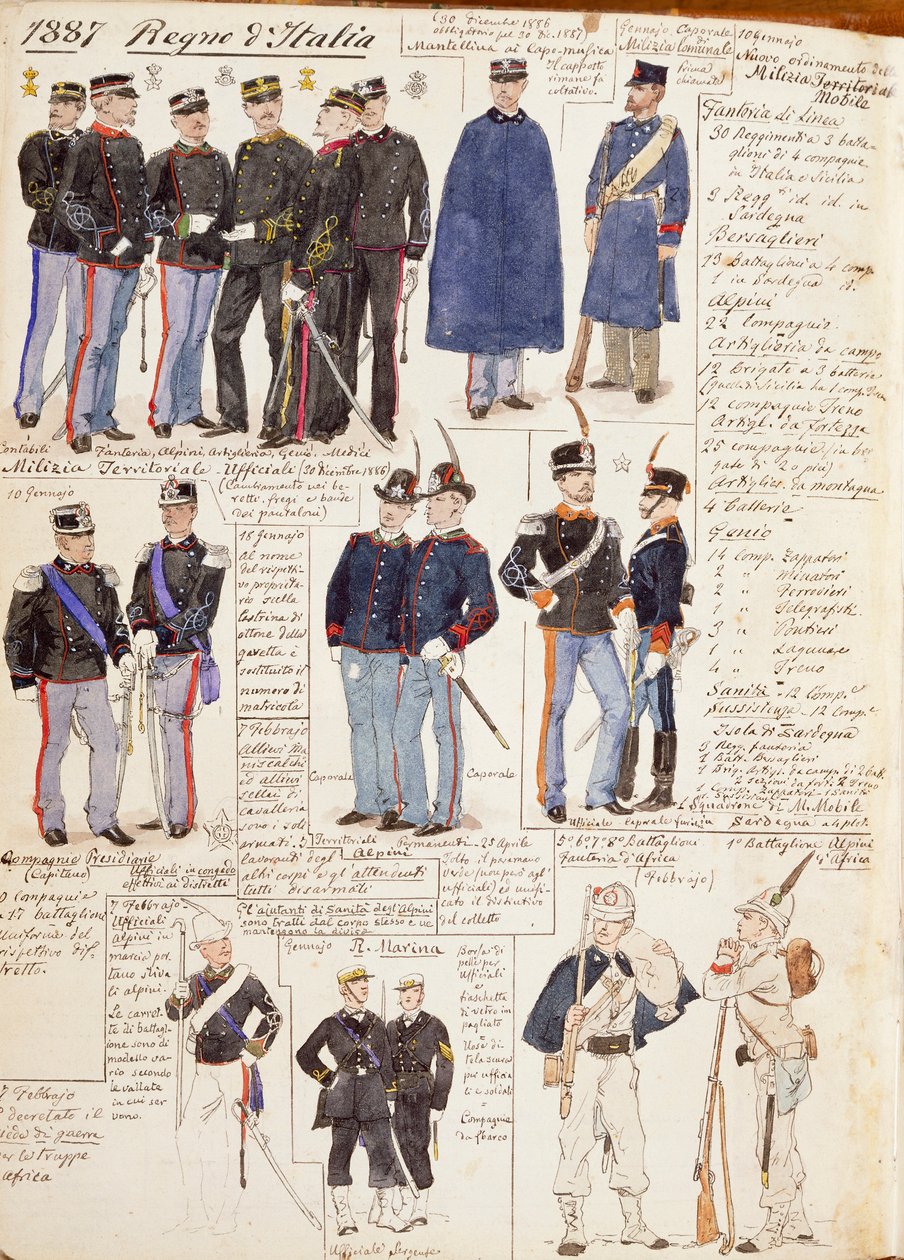 1887 Regno d'Italia
(30 dicembre 1886
obbligatorio pel 30 dic. 1887)
Mantellina ai Capo-musica
Il cappotto
rimane fa
coltativo.
Gennajo Caporale
di
Milizia Comunale
Prima
chiamata
10 Gennajo
Nuovo ordinamento della
Milizia Territoriale
Mobile
Fanteria di Linea
30 Reggimenti a 3 batta-
glioni di 4 compagnie
in Italia e Sicilia
3 Regg.ti id. id. in
Sardegna
Bersaglieri
13 battaglioni a 4 comp.
1 in Sardegna id.
Alpini
22 Compagnie.
Artiglieria da campo
12 brigate a 3 batterie
(quella di Sicilia ha 1 comp. Treno
12 compagnie Treno
Artigl. da fortezza
25 compagnie (in bri
gate di 2 o più)
Artiglier. da montagna
4 batterie
Genio
14 Comp. Zappatori
2 " Minatori
2 " Ferrovieri
1 " Telegrafisti
3 " Pontieri
1 " Lagunare
4 " Treno
Sanità - 12 Comp.e
Sussistenza - 12 Comp.e
Isola di Sardegna
3 Regg. fanteria
1 Batt. Bersaglieri
1 Brig. Artigl. da camp. di 2 batt.
1 Squadrone di M. Mobile
Sardegna a 4 plot.
Contabili Fanteria, Alpini, Artiglieria, Genio. Medici
Milizia Territoriale - Ufficiale (30 dicembre 1886)
(Cambiamento nei be-
retti. fregi e bande
dei pantaloni)
10 Gennajo
18 Gennajo
Al nome
del rispetti-
vo proprieta-
rio sulla
lastrina di
ottone della
gavetta è
sostituito il
numero di
matricola
7 Febbrajo
Allievi Ma
niscalchi
ed allievi
sellai di
cavalleria
sono i soli
armati. I
lavoranti degl'
altri corpi e gl'attendenti
tutti disarmati
Gl'ajutanti di Sanità degl'Alpini
sono tratti dal corpo stesso e ne
mantengono la divisa
Caporale
Caporale
Territoriali Permanenti - 25 Aprile
Alpini
Tolto il passamano
verde (non però agl'
ufficiali) ed unifi-
cato il distintivo
del colletto
Ufficiale - Caporale furiere
Compagnie Presidiarie
(Capitano)
Ufficiali in congedo
effettivi ai distretti
Compagnie
17 battaglioni
Uniforme del
rispettivo dis-
tretto.
7 Febbrajo
Ufficiali
alpini in
marcia por-
tano stiva
li alpini.
Le carret-
te di battagl-
ione sono di
modello va-
rio secondo
le vallate
in cui ser
vono.
7 Febbrajo
decretato il
piede di guerra
per le truppe
Africa
Gennajo R. Marina
Borsa di
pelle per
Ufficiali
e
fiaschetta
di vetro im
pagliato
Uose di
tela scura
per ufficia
li e soldati
=
Compagnie
da sbarco
Ufficiale Sergente
5° 6° 7° 8° Battaglioni
Fanteria d'Africa
(Febbrajo)
1° Battaglione Alpini
d'Africa